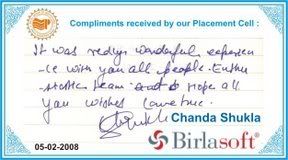 Compliments received by our Placement Cell :
It was really wonderful experien
-ce with you all people. Enthu
-siastic team and I hope all
you wishes come true.
Chanda Shukla
Birlasoft®
05-02-2008